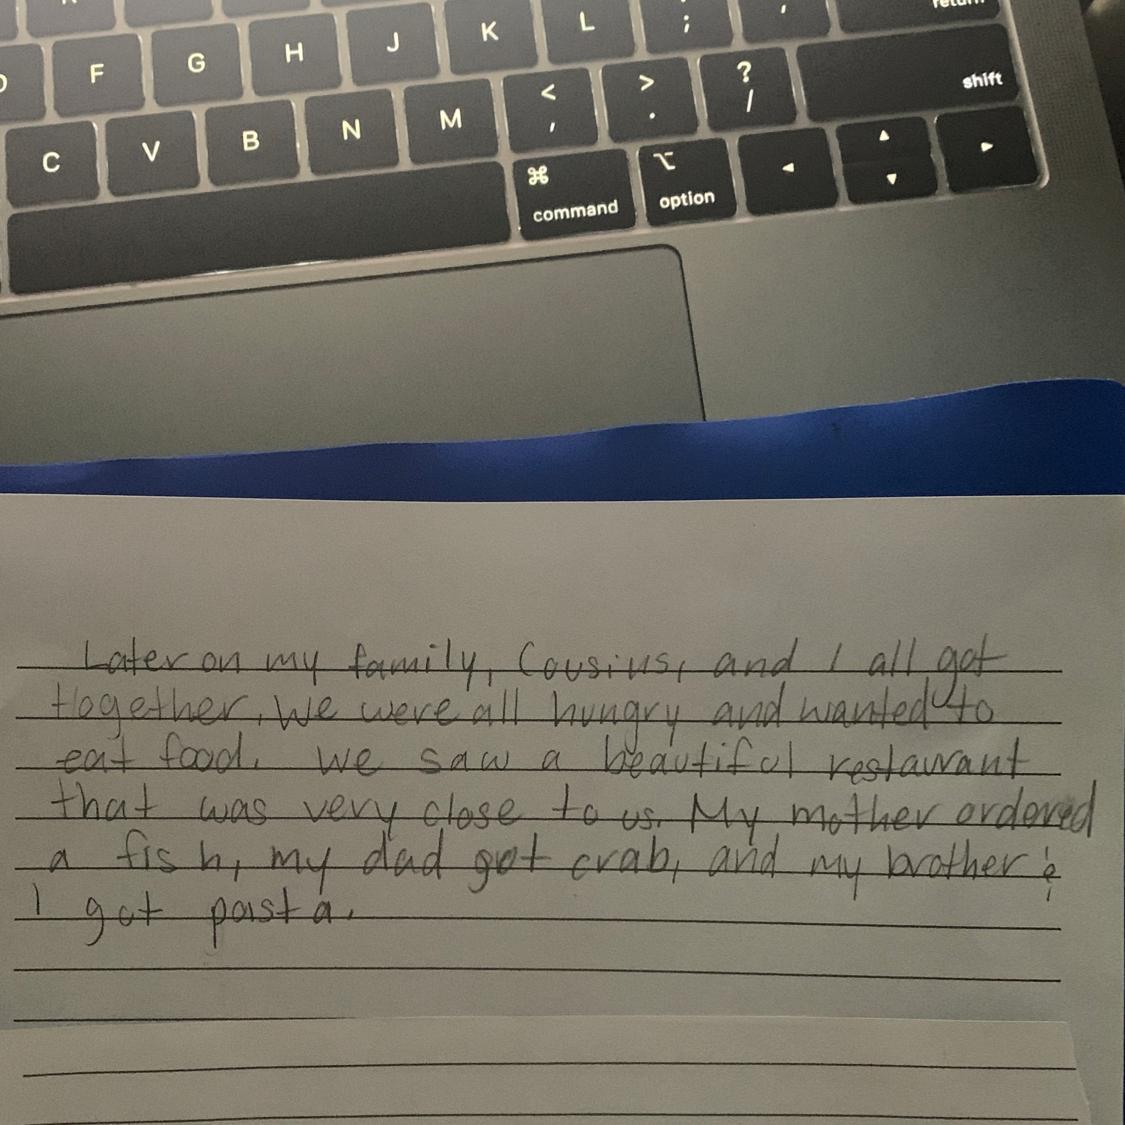 return
F G H J K L ;
shift
C V B N M < , > . ? /
⌘ command ⌥ option ◀ ▲ ▼ ▶
Later on my family, Cousins, and I all got
together. We were all hungry and wanted to
eat food. We saw a beautiful restaurant
that was very close to us. My mother ordered
a fish, my dad got crab, and my brother &
I got pasta.